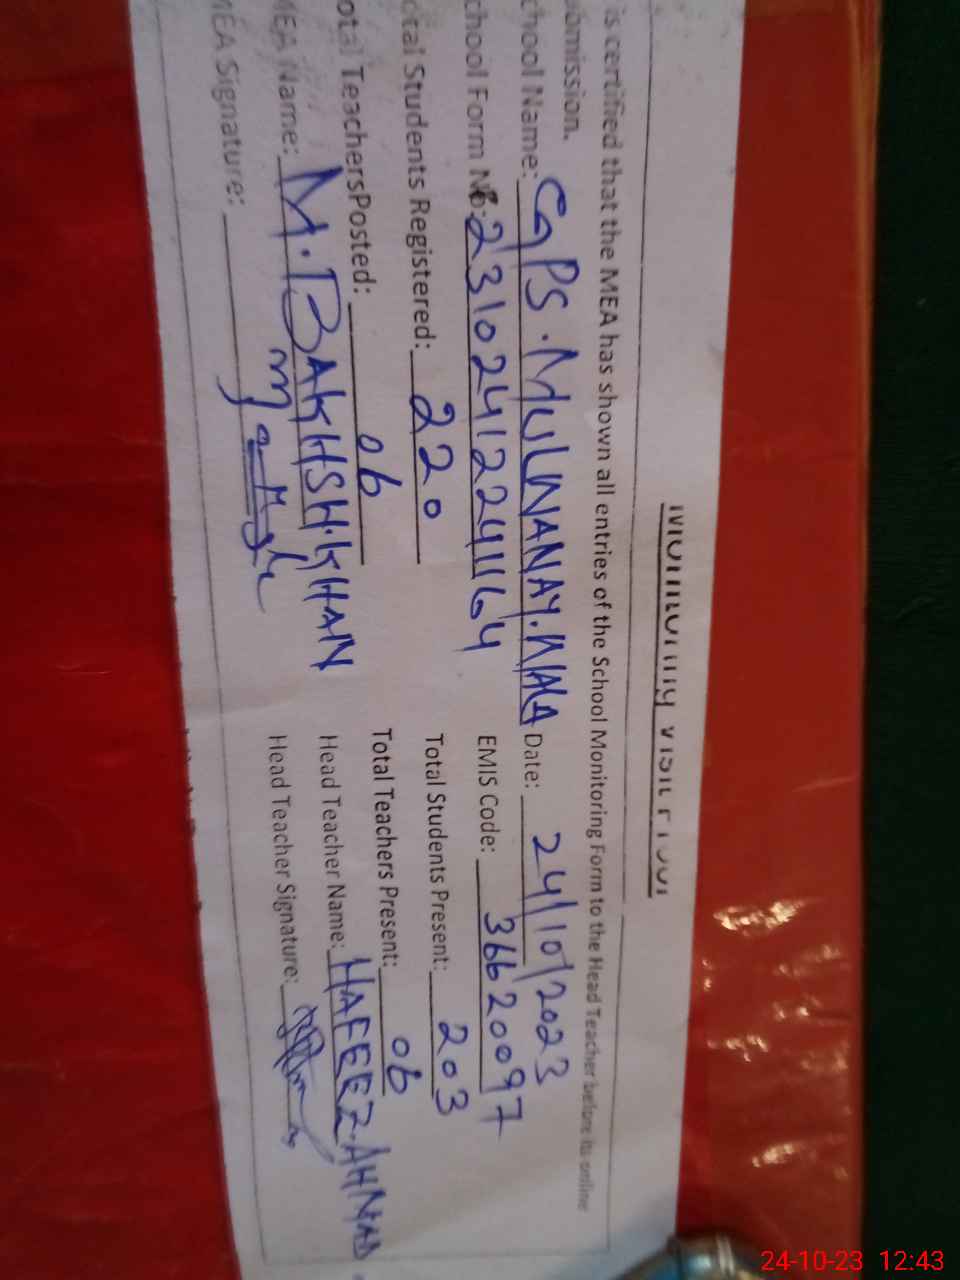 Monitoring Visit Proof
is certified that the MEA has shown all entries of the School Monitoring Form to the Head Teacher before its online
omission.
chool Name: GPS.MULWANAY.WALA Date: 24/10/2023
chool Form No: 23102412241164 EMIS Code: 36620097
otal Students Registered: 220 Total Students Present: 203
otal TeachersPosted: 06 Total Teachers Present: 06
MEA Name: M.BAKHSH.KHAN Head Teacher Name: HAFEEZ.AHMAD
MEA Signature: Head Teacher Signature:
24-10-23 12:43